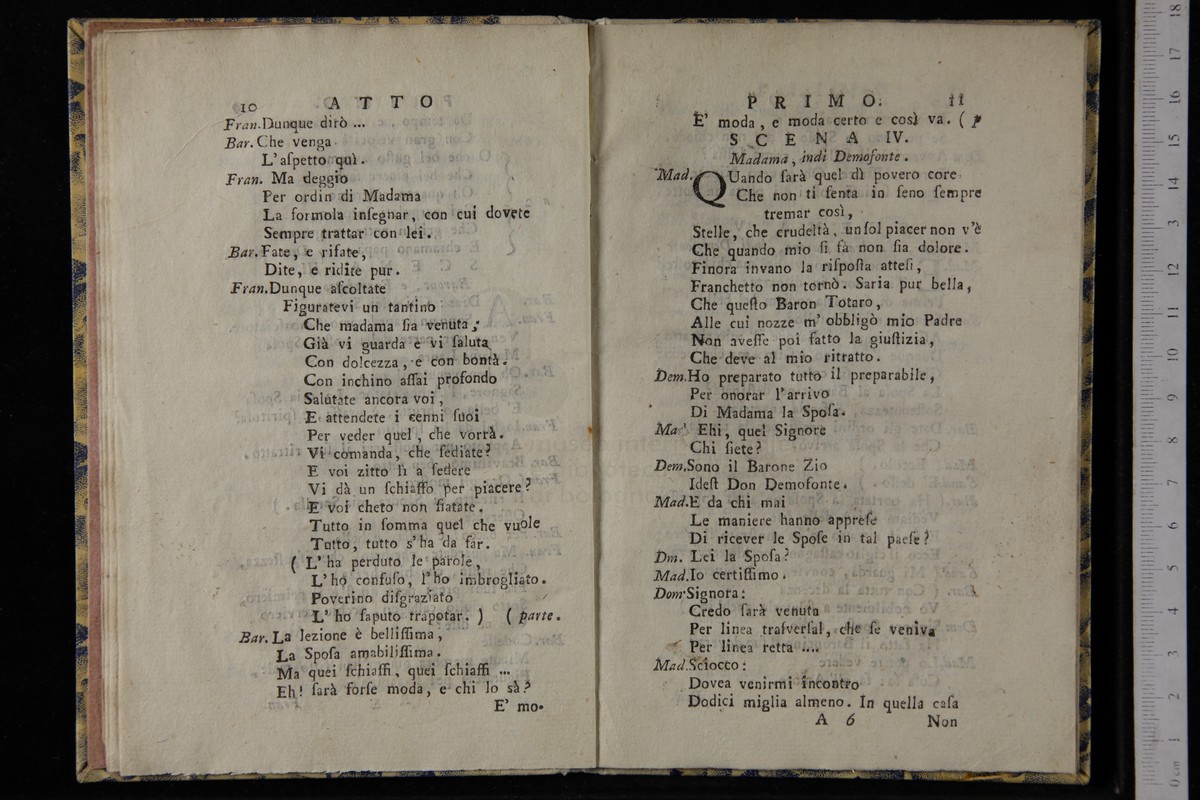 10 ATTO
Fran. Dunque dirò ...
Bar. Che venga
L'aſpetto quì.
Fran. Ma deggio
Per ordin di Madama
La formola inſegnar, con cui dovete
Sempre trattar con lei.
Bar. Fate, e rifate,
Dite, e ridite pur.
Fran. Dunque aſcoltate
Figuratevi un tantino
Che madama ſia venuta;
Già vi guarda e vi ſaluta
Con dolcezza, e con bontà.
Con inchino aſſai profondo
Salutate ancora voi,
E attendete i cenni ſuoi
Per veder quel, che vorrà.
Vi comanda, che ſediate?
E voi zitto lì a ſedere
Vi dà un ſchiaffo per piacere?
E voi cheto non fiatate.
Tutto in ſomma quel che vuole
Tutto, tutto s'ha da far.
( L'ha perduto le parole,
L'ho confuſo, l'ho imbrogliato.
Poverino diſgraziato
L'ho ſaputo trapotar. ) ( parte.
Bar. La lezione è belliſſima,
La Spoſa amabiliſſima.
Ma quei ſchiaffi, quei ſchiaffi ...
Eh! ſarà forſe moda, e chi lo sà?
E' mo-
PRIMO. 11
E' moda, e moda certo e così va. ( p
SCENA IV.
Madama, indi Demofonte.
Mad. QUando ſarà quel dì povero core
Che non ti ſenta in ſeno ſempre
tremar così,
Stelle, che crudeltà, un ſol piacer non v'è
Che quando mio ſi fà non ſia dolore.
Finora invano la riſpoſta atteſi,
Franchetto non tornò. Saria pur bella,
Che queſto Baron Totaro,
Alle cui nozze m'obbligò mio Padre
Non aveſſe poi fatto la giuſtizia,
Che deve al mio ritratto.
Dem. Ho preparato tutto il preparabile,
Per onorar l'arrivo
Di Madama la Spoſa.
Mad. Ehi, quel Signore
Chi ſiete?
Dem. Sono il Barone Zio
Ideſt Don Demofonte.
Mad. E da chi mai
Le maniere hanno appreſe
Di ricever le Spoſe in tal paeſe?
Dm. Lei la Spoſa?
Mad. Io certiſſimo.
Dom Signora:
Credo ſarà venuta
Per linea traſverſal, che ſe veniva
Per linea retta ....
Mad. Sciocco:
Dovea venirmi incontro
Dodici miglia almeno. In quella caſa
A 6 Non